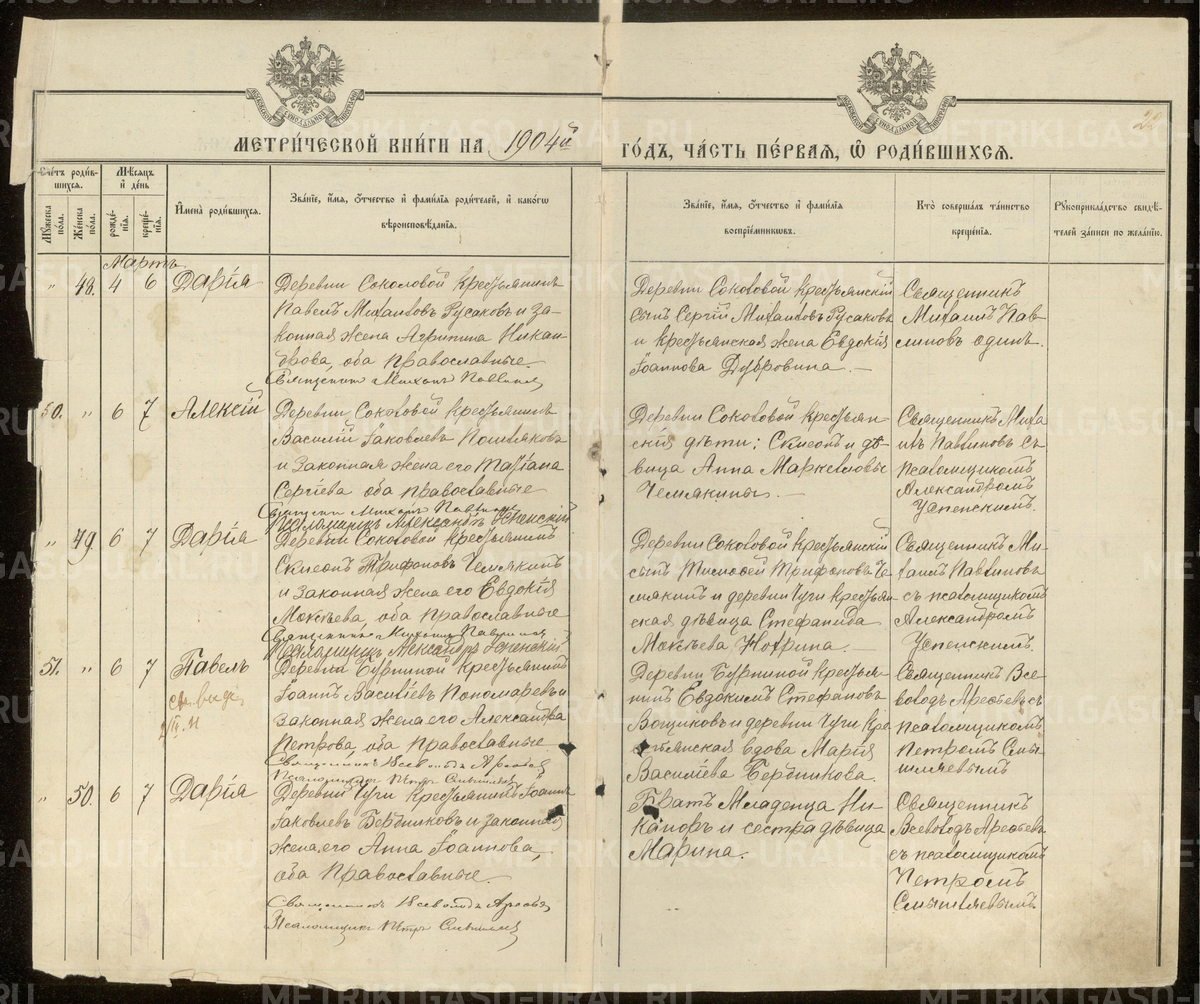 МЕТРИ́ЧЕСКОЙ КНИ́ГИ НА 1904й ГО́ДЪ, ЧА́СТЬ ПЕ́РВАЯ, Ѿ РОДИ́ВШИХСЯ.
22
Счетъ роди́в-
шихся.
Му́жеска по́ла.
Же́нска по́ла.
Мѣсяцъ
и҆ де́нь
рожде́-
нія.
креще́-
нія.
И҆мена̀ роди́вшихся.
Зва́ніе, и҆́мя, ѻ҆́тчество и҆ фамилія роди́телей, и҆ какогѡ
вѣроисповѣ́данія.
Зва́ніе, и҆́мя, ѻ҆́тчество и҆ фами́лія
воспріе́мниковъ.
Кто̀ соверша́лъ та́инство
креще́нія.
Рꙋкоприкла́дство свидѣ́-
телей за́писи по жела́нію.
Мартъ
" 48. 4 6 Дарія
Деревни Соколовой крестьянинъ
Павелъ Михаиловъ Русаковъ и за-
конная жена Агрипина Никан-
дрова, оба православные.
Священникъ Михаилъ Павлиновъ
Деревни Соколовой крестьянскій
сынъ Сергій Михаиловъ Русаковъ
и крестьянская жена Евдокія
Іоаннова Дубровина. —
Священникъ
Михаилъ Пав-
линовъ одинъ.
50. " 6 7 Алексій
Деревни Соколовой крестьянинъ
Василій Іаковлевъ
и законная жена его Татіана
Сергіева оба православные
Священникъ Михаилъ Павлиновъ
Псаломщикъ Александръ Успенскій
Деревни Соколовой крестьян-
скія дѣти: Симеонъ и дѣ-
вица Анна Маркеловы
Чемякины. —
Священникъ Миха
илъ Павлиновъ съ
псаломщикомъ
Александромъ
Успенскимъ.
" 49. 6 7 Дарія
Деревни Соколовой крестьянинъ
Симеонъ Трифоновъ Чемякинъ
и законная жена его Евдокія
Мокіева, оба православные
Священникъ Михаилъ Павлиновъ
Псаломщикъ Александръ Успенскій
Деревни Соколовой крестьянскій
сынъ Тимоѳей Трифоновъ Че-
мякинъ и деревни Чуги крестьян-
ская дѣвица Стефанида
Мокіева
Священникъ Ми-
хаилъ Павлиновъ
съ псаломщикомъ
Александромъ
Успенскимъ.
51. " 6 7 Павелъ
Деревни крестьянинъ
Іоаннъ Василіевъ Пономаревъ и
законная жена его Александра
Петрова, оба православные.
Священникъ Всеволодъ
Псаломщикъ Петръ
Деревни крестья-
нинъ Евдокимъ Стефановъ
и деревни Чуги кре-
стьянская вдова Марія
Василіева Бердникова.
Священникъ Все-
володъ съ
псаломщикомъ
Петромъ Смы-
шляевымъ
" 50. 6 7 Дарія
Деревни Чуги крестьянинъ Іоаннъ
Іаковлевъ Бердниковъ и законная
жена его Анна Іоаннова,
оба православные.
Священникъ Всеволодъ
Псаломщикъ Петръ
Братъ младенца Ни-
каноръ и сестра дѣвица
Марина.
Священникъ
Всеволодъ
съ псаломщикомъ
Петромъ
Смышляевымъ.
METRIKI.GASO-URAL.RU